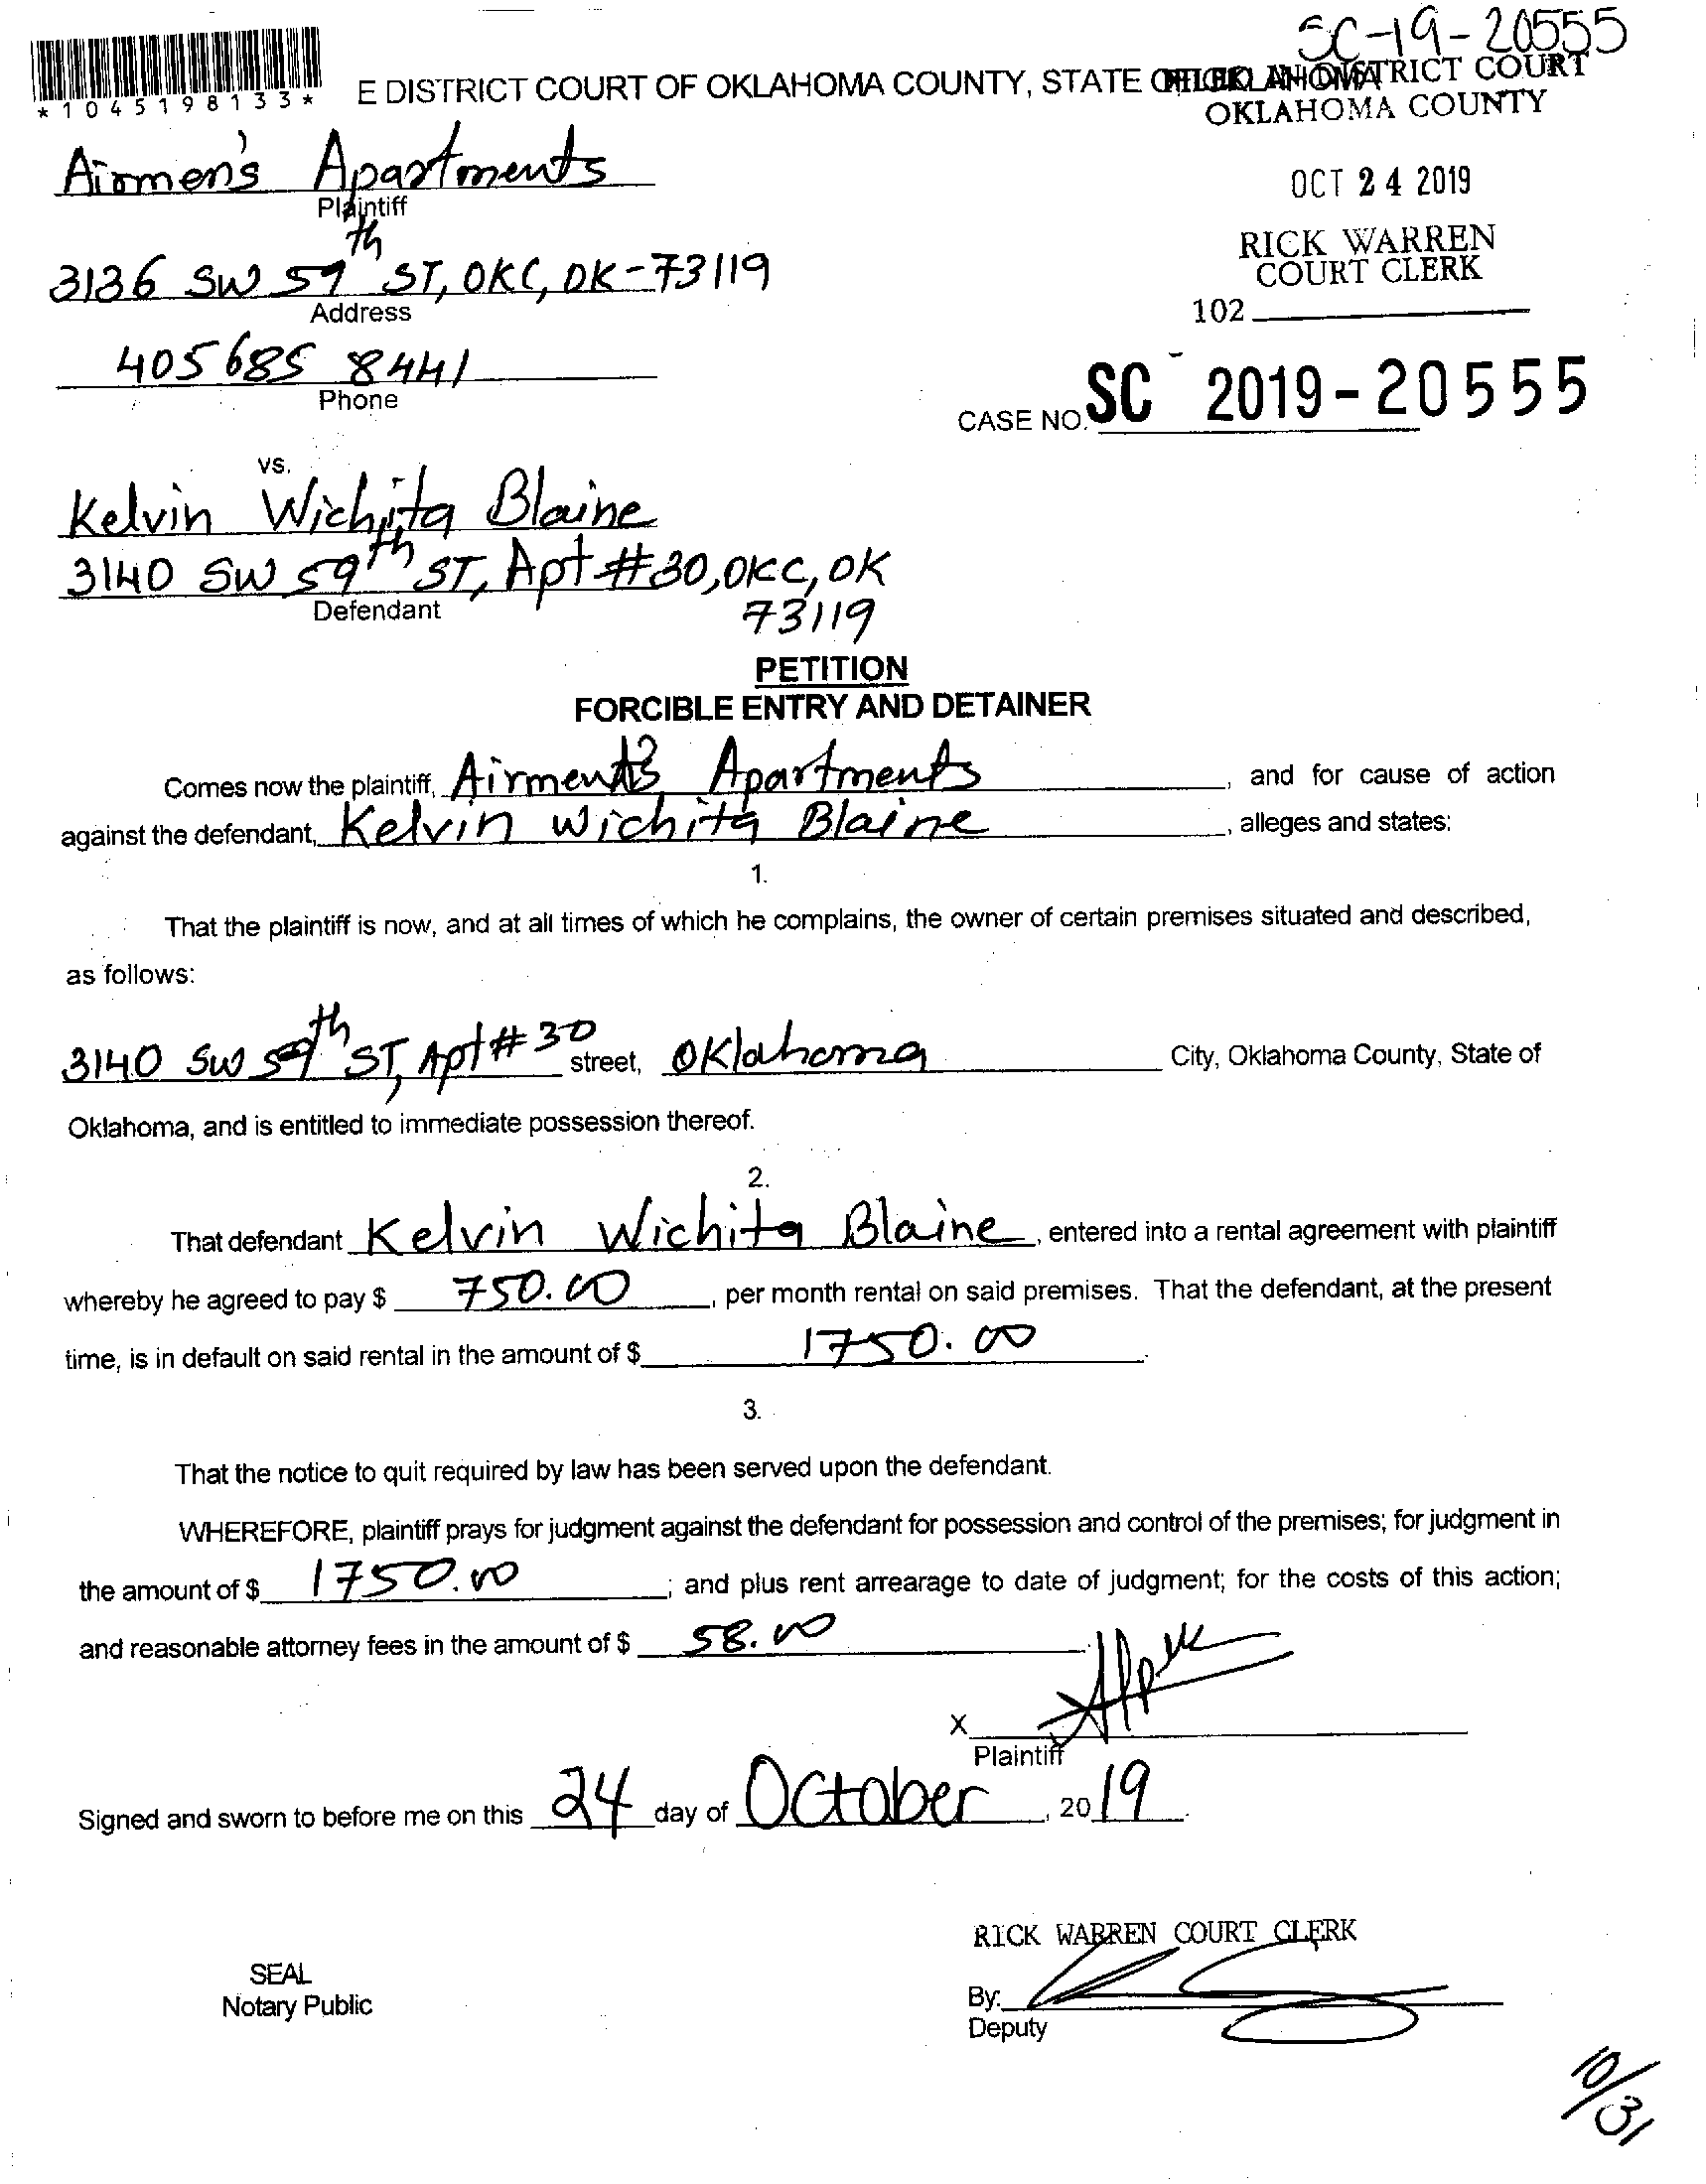 SC-19-20555
*1045198133*
E DISTRICT COURT OF OKLAHOMA COUNTY, STATE OF OKLAHOMA
FILED IN DISTRICT COURT
OKLAHOMA COUNTY
Airmen's Apartments
Plaintiff
OCT 24 2019
RICK WARREN
COURT CLERK
102
3136 SW 59th ST, OKC, OK-73119
Address
405 685 8441
Phone
CASE NO. SC 2019-20555
vs.
Kelvin Wichita Blaine
3140 SW 59th ST, Apt #30, OKC, OK
73119
Defendant
PETITION
FORCIBLE ENTRY AND DETAINER
Comes now the plaintiff, Airmen's Apartments, and for cause of action
against the defendant, Kelvin Wichita Blaine, alleges and states:
1.
That the plaintiff is now, and at all times of which he complains, the owner of certain premises situated and described,
as follows:
3140 SW 59th ST, Apt # 30 street, Oklahoma City, Oklahoma County, State of
Oklahoma, and is entitled to immediate possession thereof.
2.
That defendant Kelvin Wichita Blaine, entered into a rental agreement with plaintiff
whereby he agreed to pay $ 750.00, per month rental on said premises. That the defendant, at the present
time, is in default on said rental in the amount of $ 1750.00.
3.
That the notice to quit required by law has been served upon the defendant.
WHEREFORE, plaintiff prays for judgment against the defendant for possession and control of the premises; for judgment in
the amount of $ 1750.00; and plus rent arrearage to date of judgment; for the costs of this action;
and reasonable attorney fees in the amount of $ 58.00.
X
Plaintiff
Signed and sworn to before me on this 24 day of October, 2019.
RICK WARREN COURT CLERK
SEAL
Notary Public
By:
Deputy
10/31